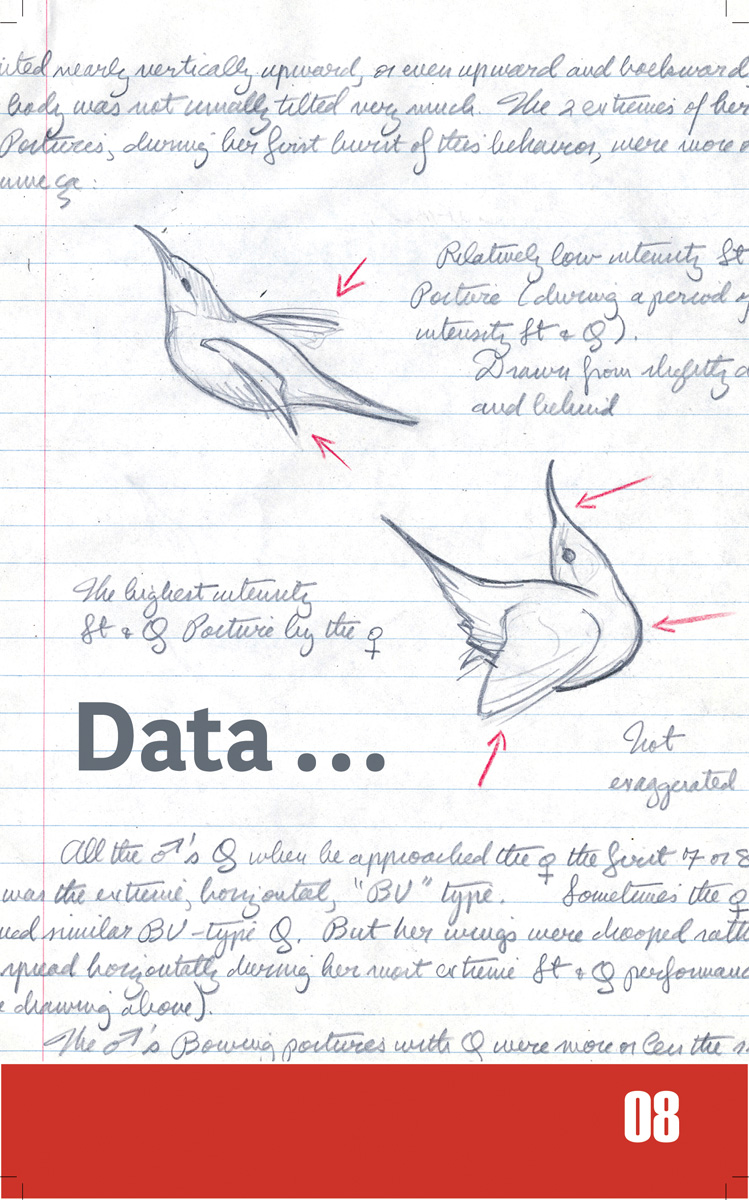 nearly vertically upward, or even upward and backward
body was not usually tilted very much. The 2 extremes of her
Postures, during her first burst of this behavior, were more o
Relatively low intensity St
Posture (during a period
intensity St & Q).
Drawn from slightly
and behind
The highest intensity
St & Q Posture by the ♀
Data ...
Not
exaggerated
All the ♂'s Q when he approached the ♀ the first 7 or 8
was the extreme, horizontal, "BU" type. Sometimes the ♀
similar BU-type Q. But her wings were drooped
spread horizontally during her most extreme St & Q
drawing above).
The ♂'s Bowing postures with Q were more or less the
08